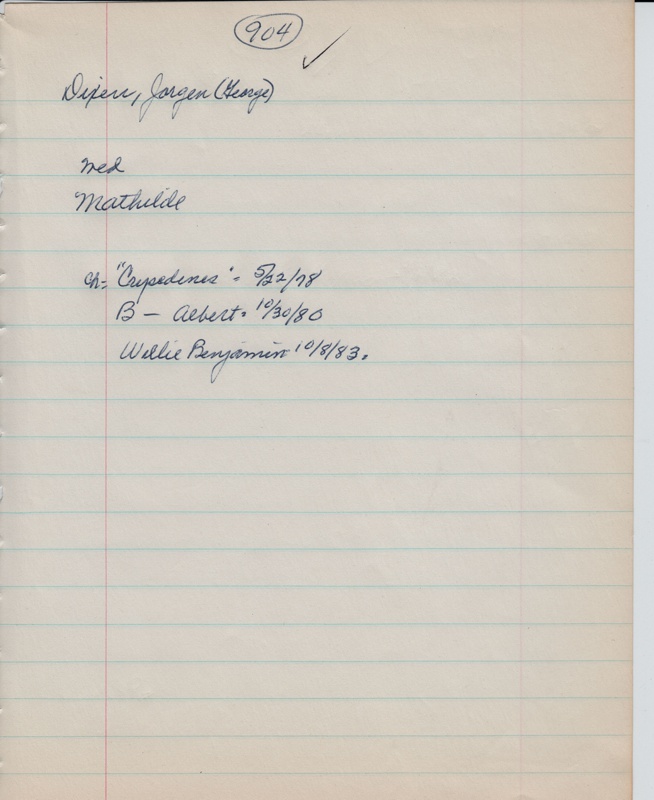 904 ✓
Dixen, Jorgen (George)
med
Mathilde
Ch = "Crysedines" = 5/22/78
B - Albert = 10/30/80
Willie Benjamin 10/8/83.